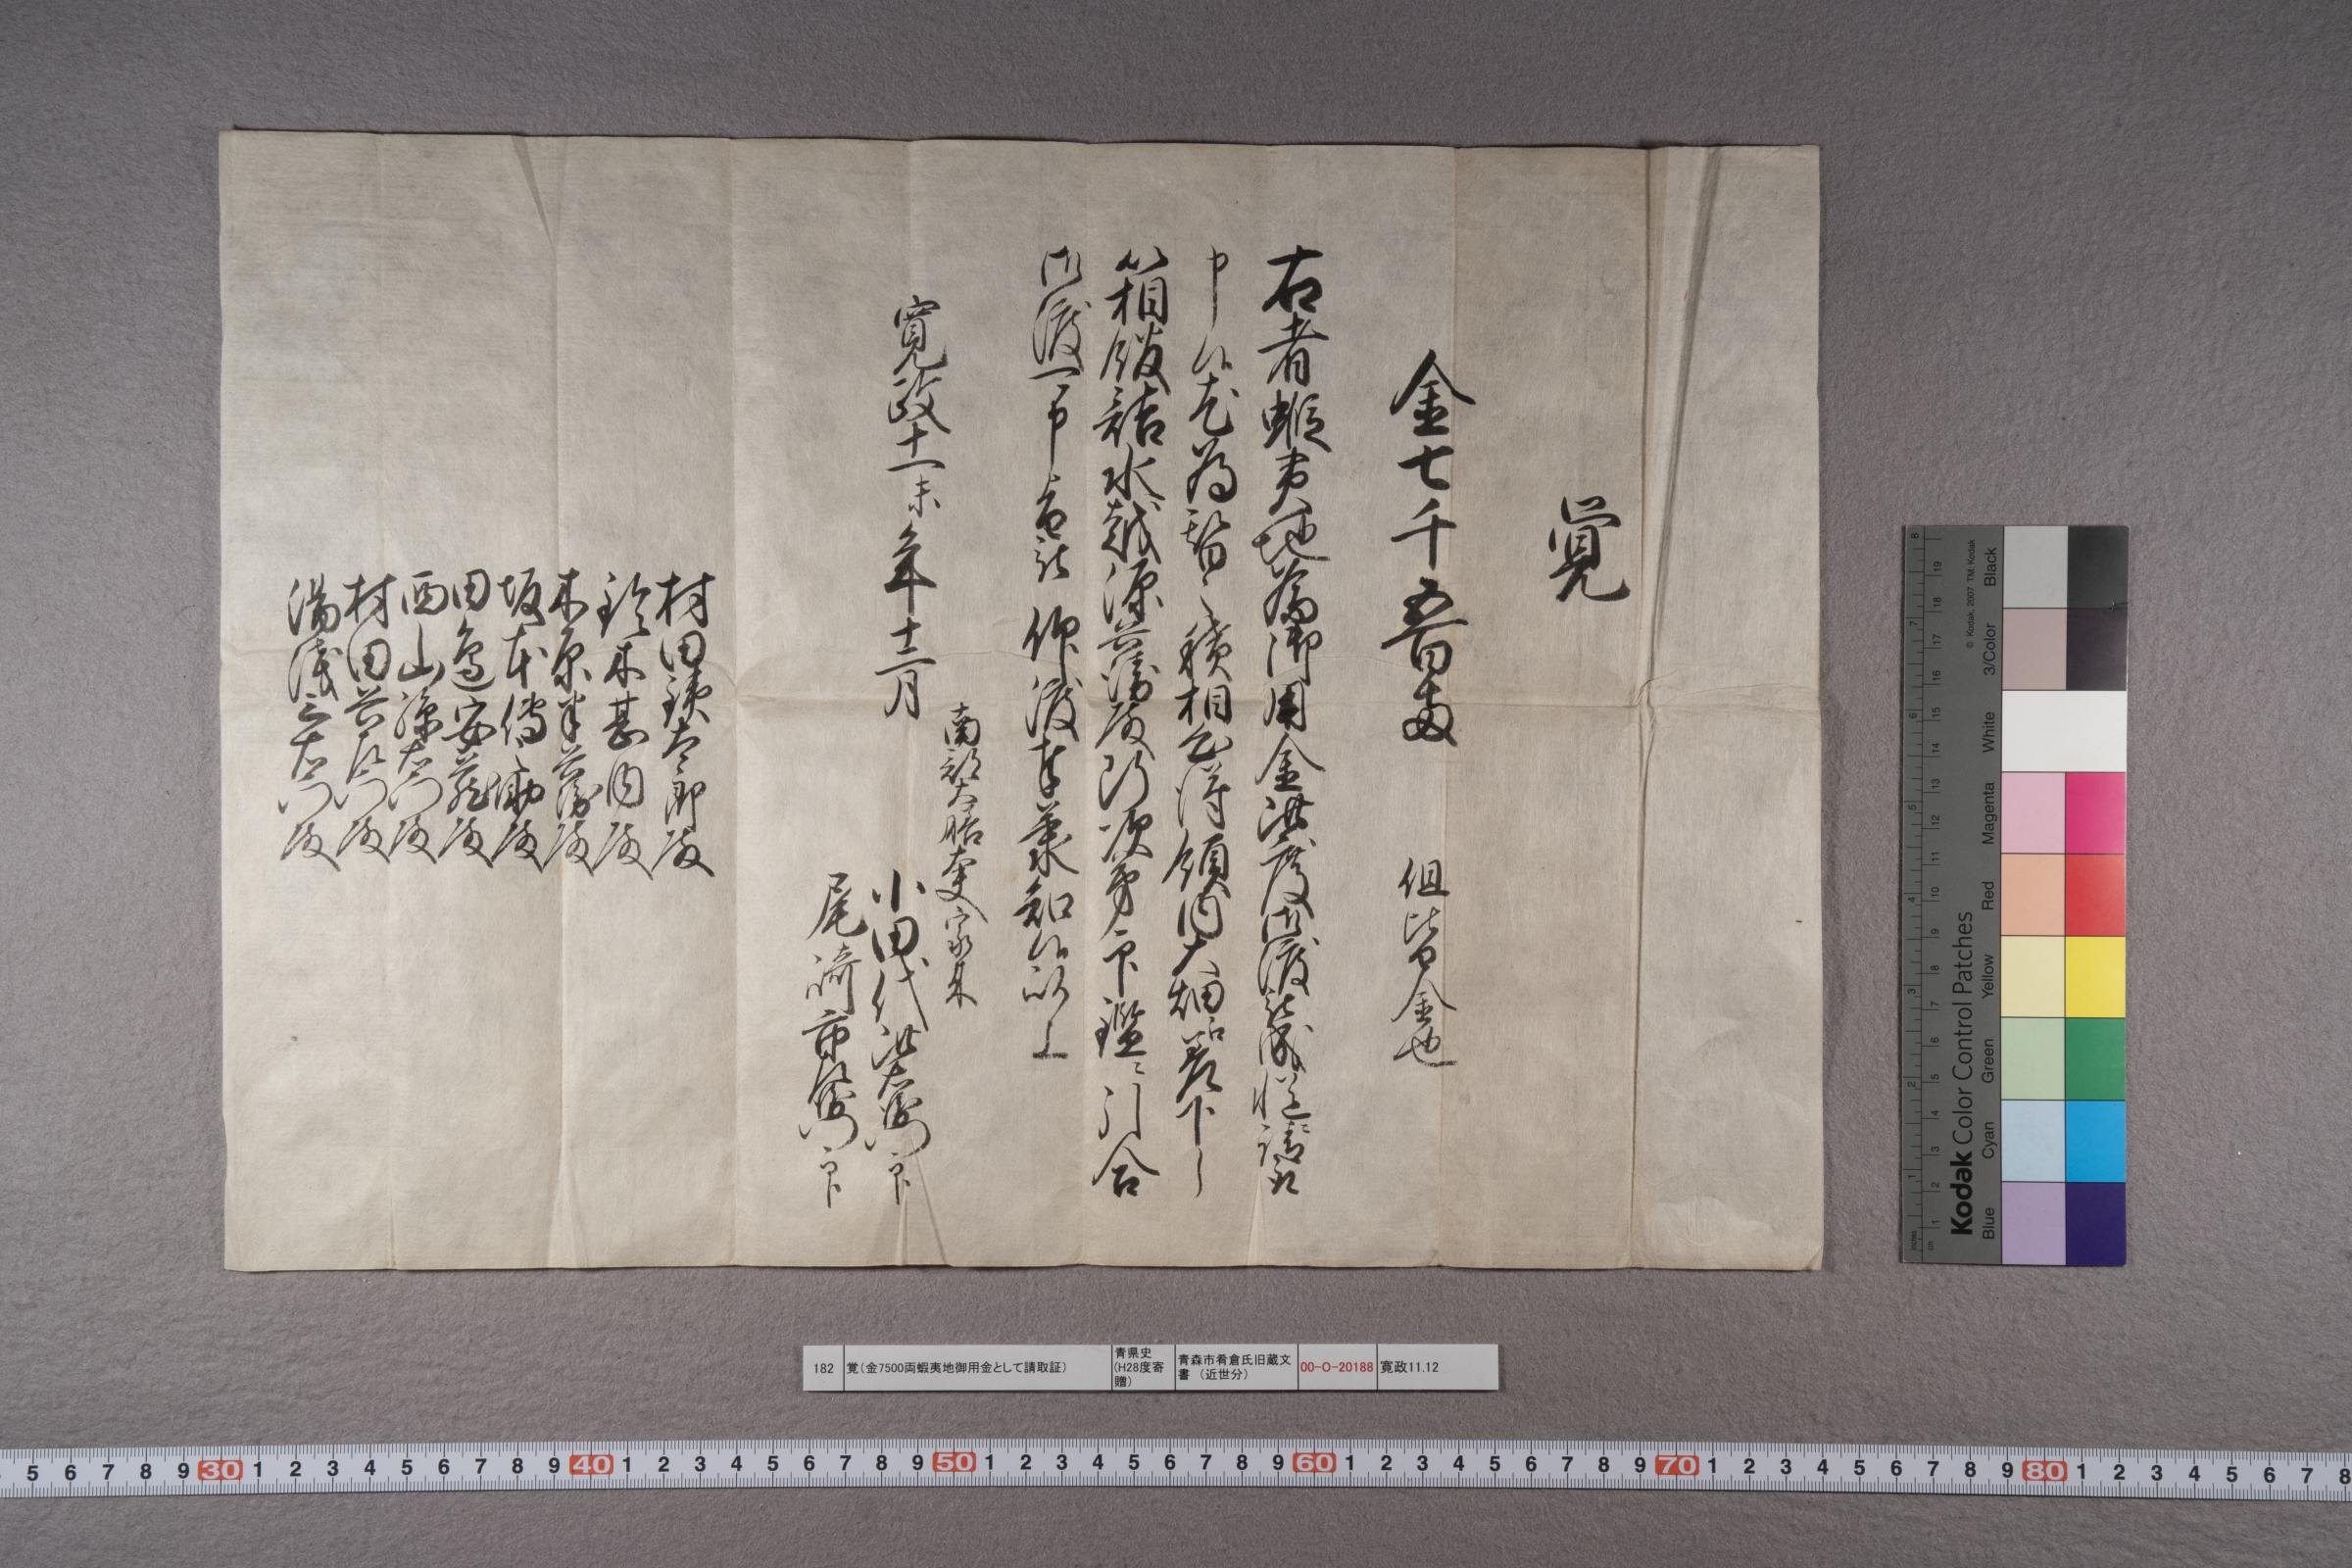 覚
金七千五百両
但皆金也
右者蝦夷地為御用金洪度御渡被成慥ニ請取
申候尤為替ニ積相心得領内大畑江差下し
箱館詰水越源兵衛殿江次第印鑑ニ引合
御渡可申旨被仰渡奉承知候以上
寛政十一未年十二月
南部大膳大夫家来
小田代洪右衛門印
尾崎市兵衛門印
村田鉄太郎殿
鈴木甚内殿
木原半兵衛殿
坂本伝之助殿
田辺安蔵殿
西山孫右衛門殿
村田兵左衛門殿
湯浅三右衛門殿
182 覚(金7500両蝦夷地御用金として請取証) 青県史(H28度寄贈) 青森市肴倉氏旧蔵文書 (近世分) 00-O-20188 寛政11.12
Kodak Color Control Patches
© Kodak, 2007 TM: Kodak
Blue Cyan Green Yellow Red Magenta White 3/Color Black
5 6 7 8 9 30 1 2 3 4 5 6 7 8 9 40 1 2 3 4 5 6 7 8 9 50 1 2 3 4 5 6 7 8 9 60 1 2 3 4 5 6 7 8 9 70 1 2 3 4 5 6 7 8 9 80 1 2 3 4 5 6 7 8